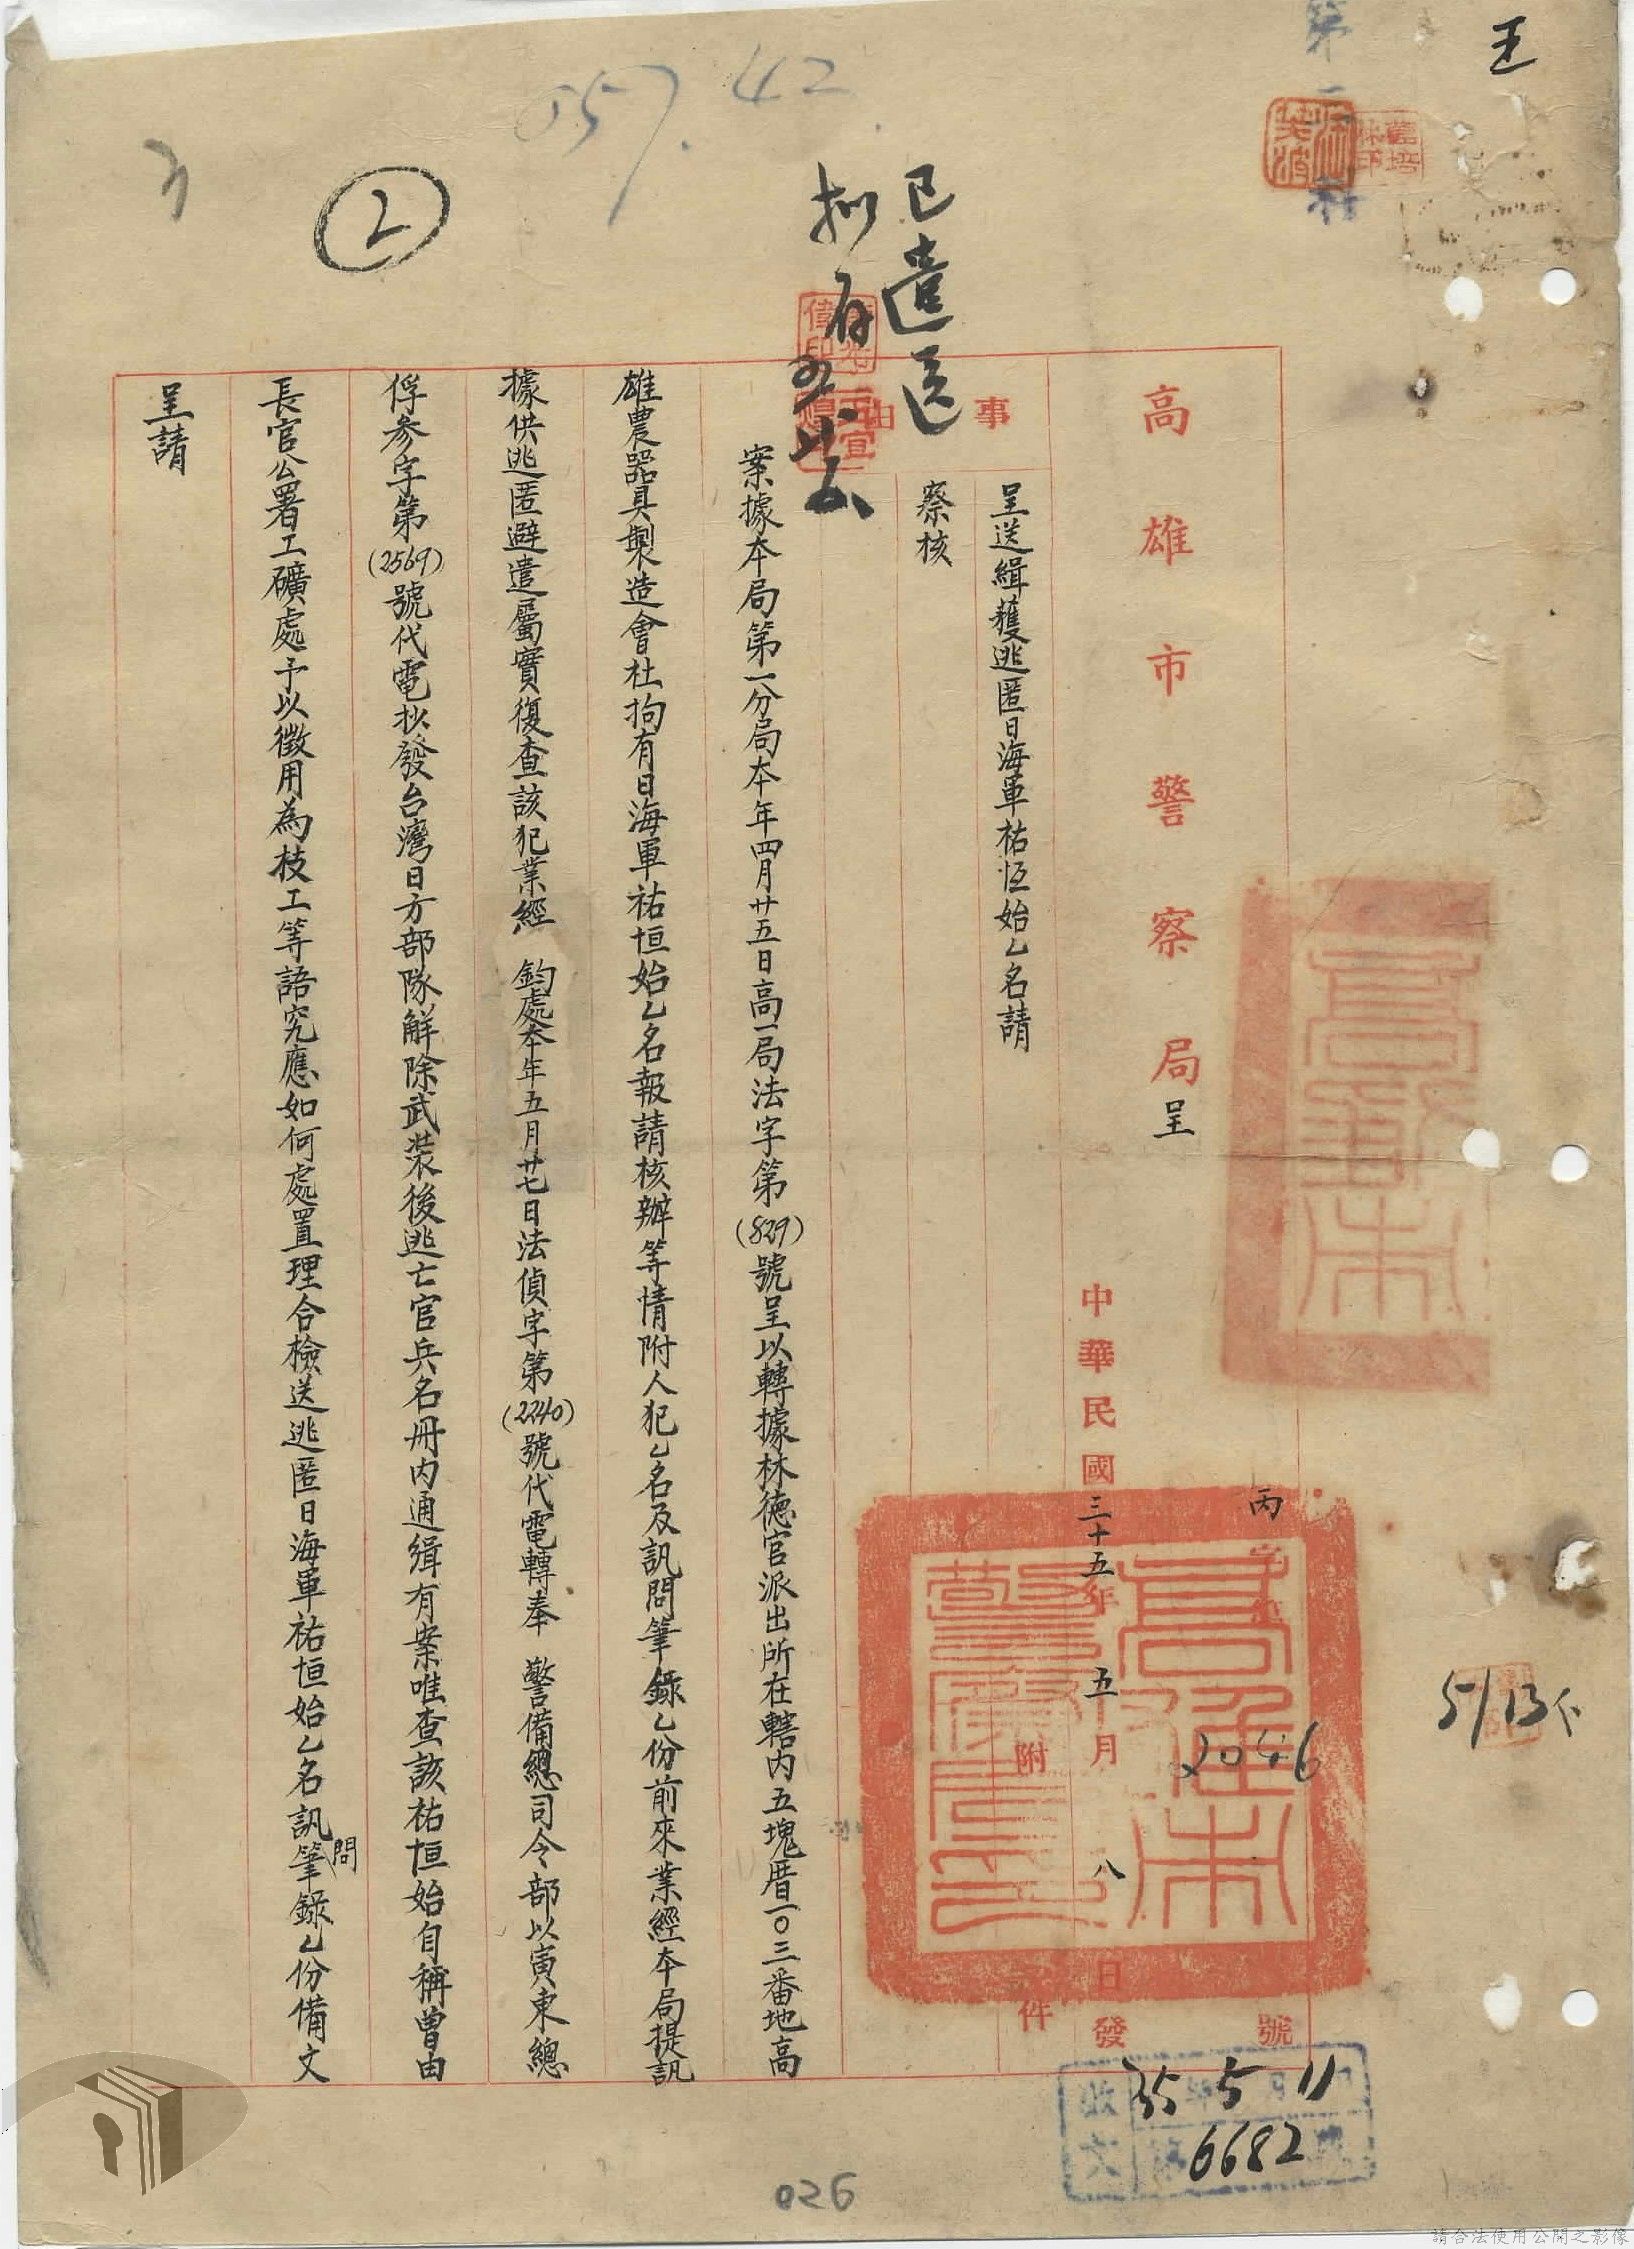 王
第二科
5/13下
高雄市警察局呈
丙字第2046號
中華民國三十五年五月八日發
附件
收文
35 5 11
6682
事由
呈送緝獲逃匿日海軍祐恆始乙名請
察核
已遣送
拟存
057.42
2
案據本局第一分局本年四月廿五日高一局法字第(829)號呈以轉據林德官派出所在轄內五塊厝一〇三番地高
雄農器具製造會社拘有日海軍祐恒始乙名報請核辦等情附人犯乙名及訊問筆錄乙份前來業經本局提訊
據供逃匿避遣屬實復查該犯業經 鈞處本年五月廿七日法偵字第(2240)號代電轉奉 警備總司令部以寅東總
俘参字第(2569)號代電抄發台灣日方部隊解除武裝後逃亡官兵名冊內通緝有案唯查該祐恒始自稱曾由
長官公署工礦處予以徵用為技工等語究應如何處置理合檢送逃匿日海軍祐恒始乙名訊問筆錄乙份備文
呈請
026
請合法使用公開之影像